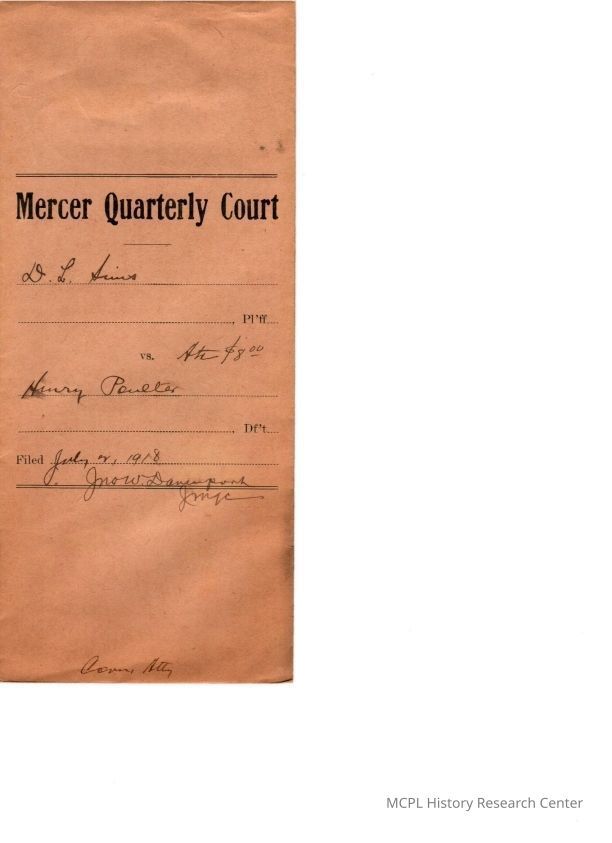 Mercer Quarterly Court
D. L. Sims
, Pl'ff
vs. Att $8.00
Henry Poulter
, Df't
Filed July 2, 1918
Jno W. Davenport
Atty
MCPL History Research Center